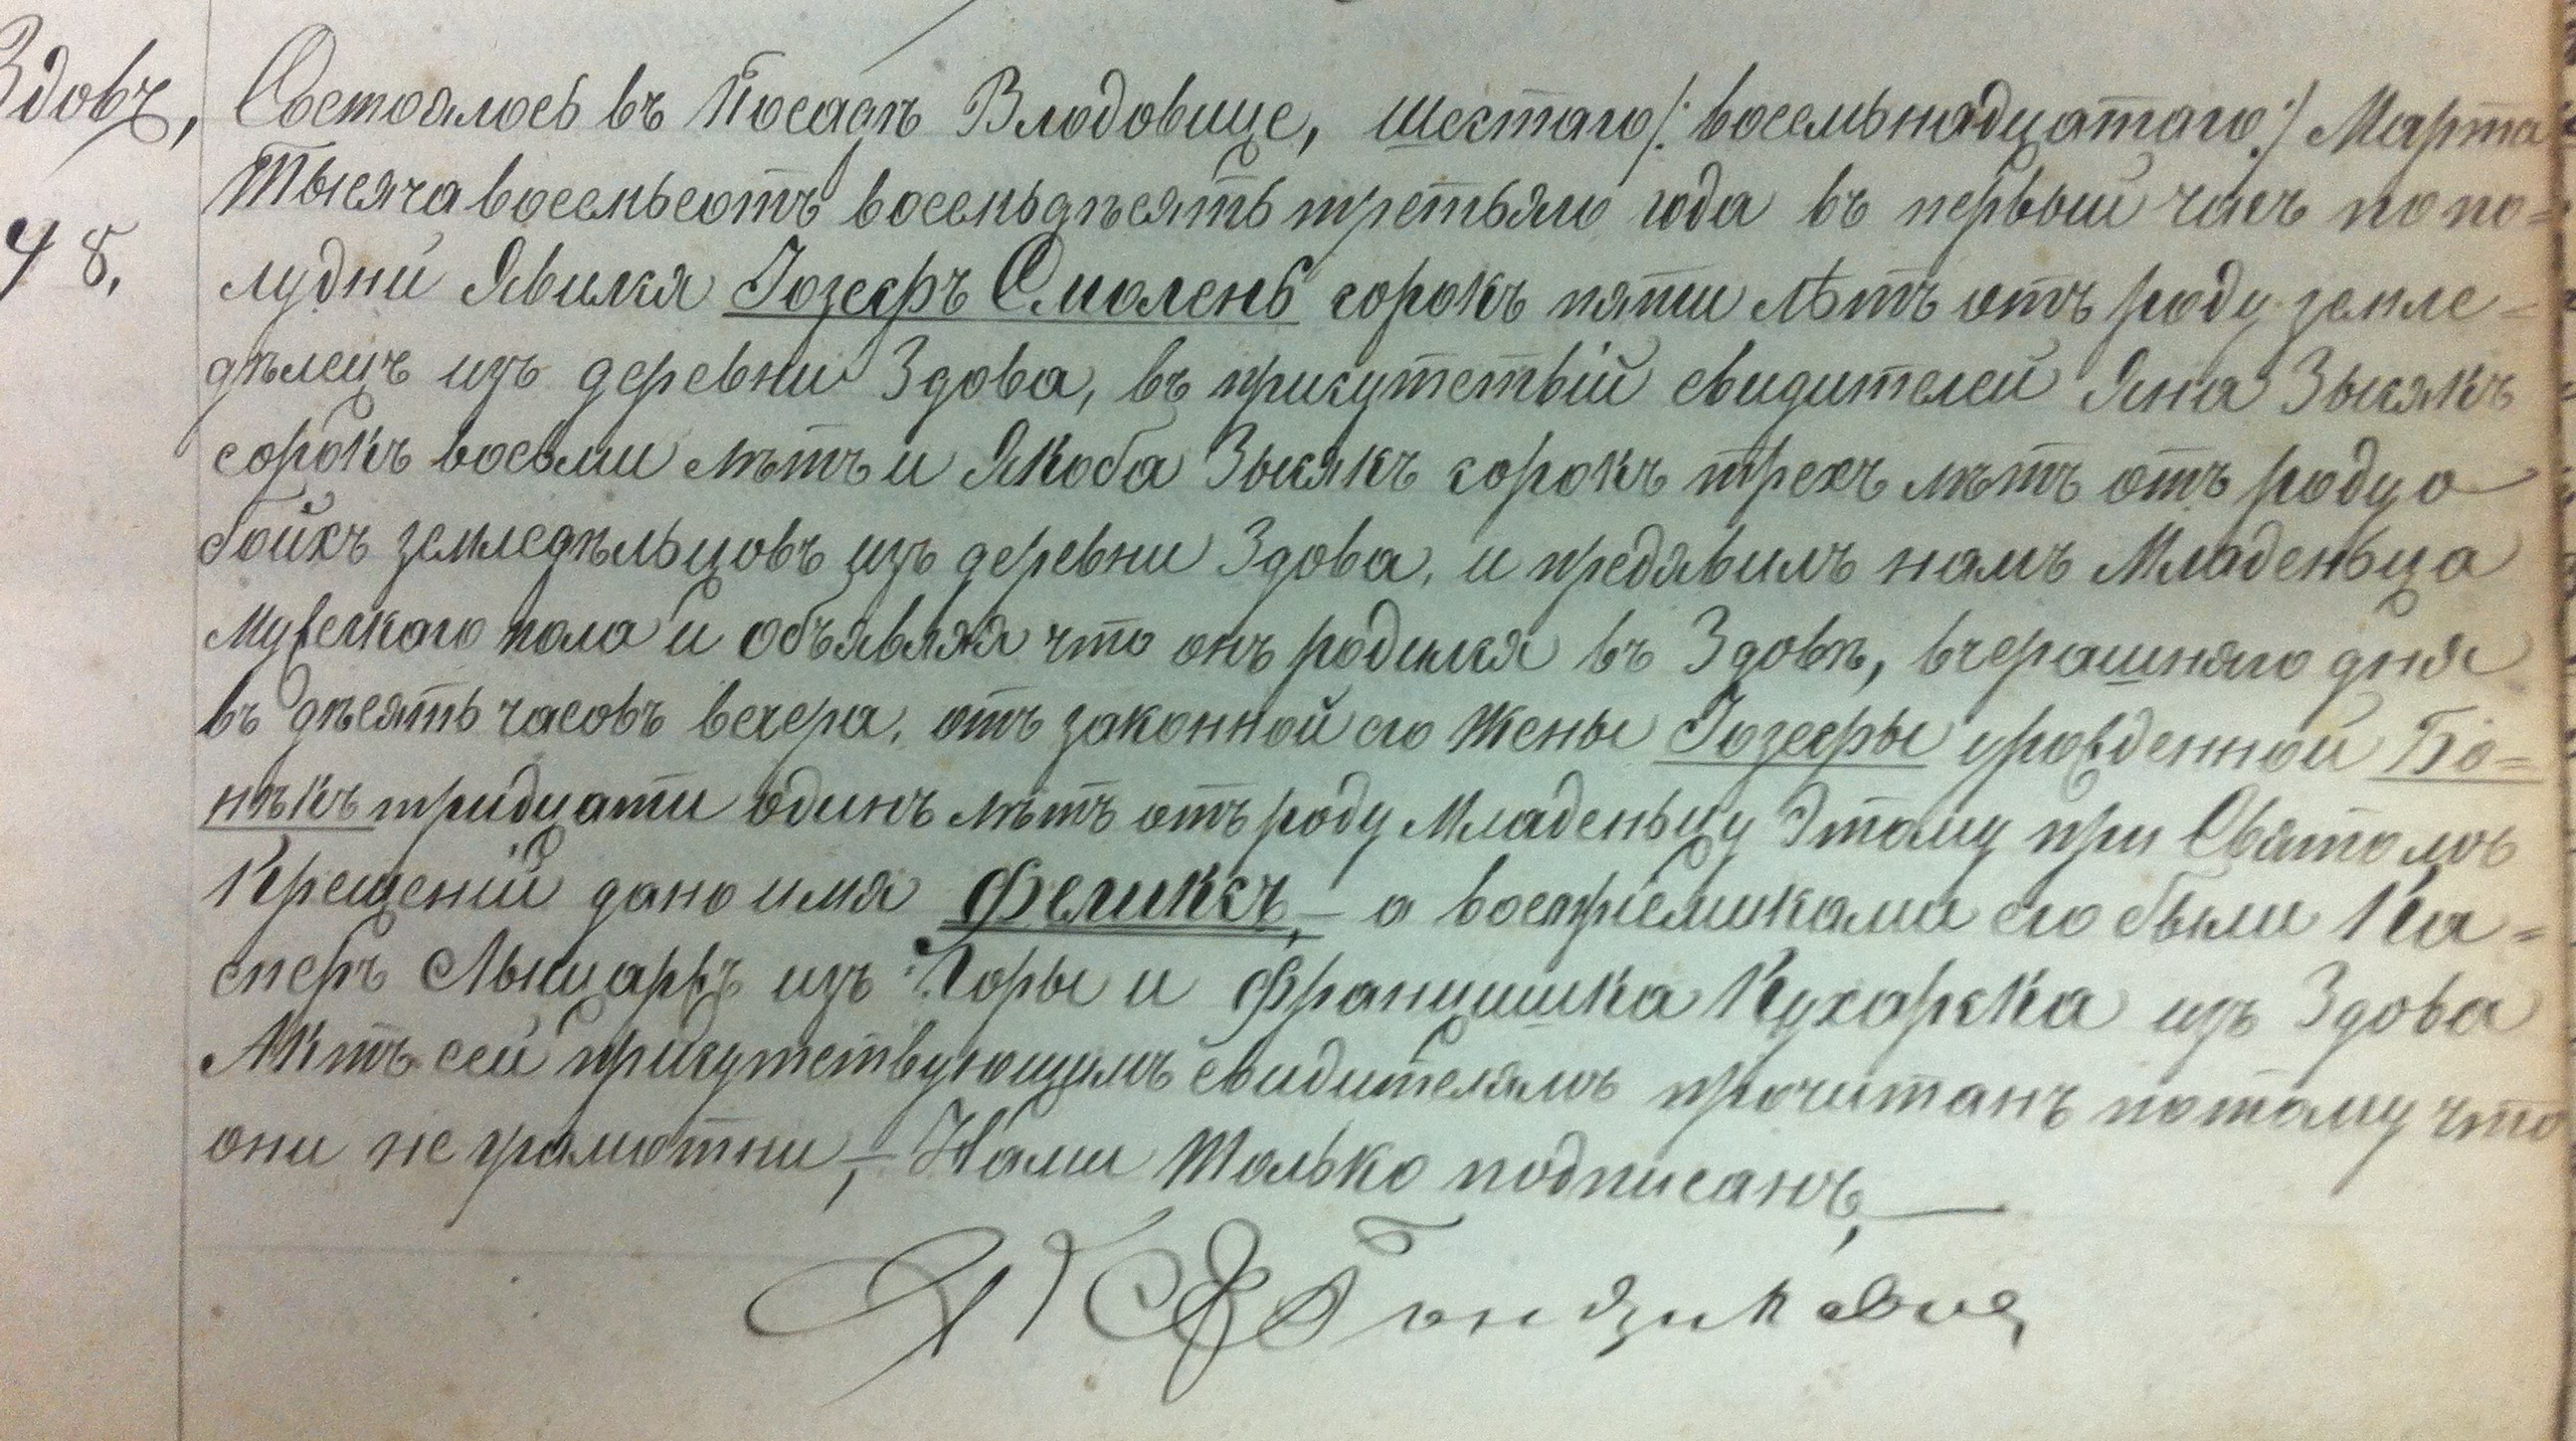 Здовъ,
48.
Состоялось въ Посадѣ Влодовице, шестаго /:восемьнадцатаго:/ Марта
Тысяча восемьсотъ восемьдѣсять третьяго года въ первый часъ попо=
лудни явился Іозефъ Смолень сорокъ пяти лѣтъ отъ роду земле=
дѣлецъ изъ деревни Здова, въ присутствій свидителей Яна Зысякъ
сорокъ восьми лѣтъ и Якоба Зысякъ сорокъ трехъ лѣтъ отъ роду о
бойхъ земледѣльцовъ изъ деревни Здова, и предявилъ намъ Младеньца
Мужескаго пола и объявляя что онъ родился въ Здовѣ, вчерашняго дня
въ дѣсять часовъ вечера, отъ законной его жены Іозефы урожденной Бо=
нѣкъ тридцати одинъ лѣтъ отъ роду Младеньцу Этому при Святомъ
Крещеній дано имя Феликсъ, — а воспріемиками его были Ка=
сперъ Лыщаржъ изъ Горы и Францишка Кухарска изъ Здова
Актъ сей присутствующимъ свидителямъ прочитанъ потому что
они не грамотни, — Нами только подписанъ, —